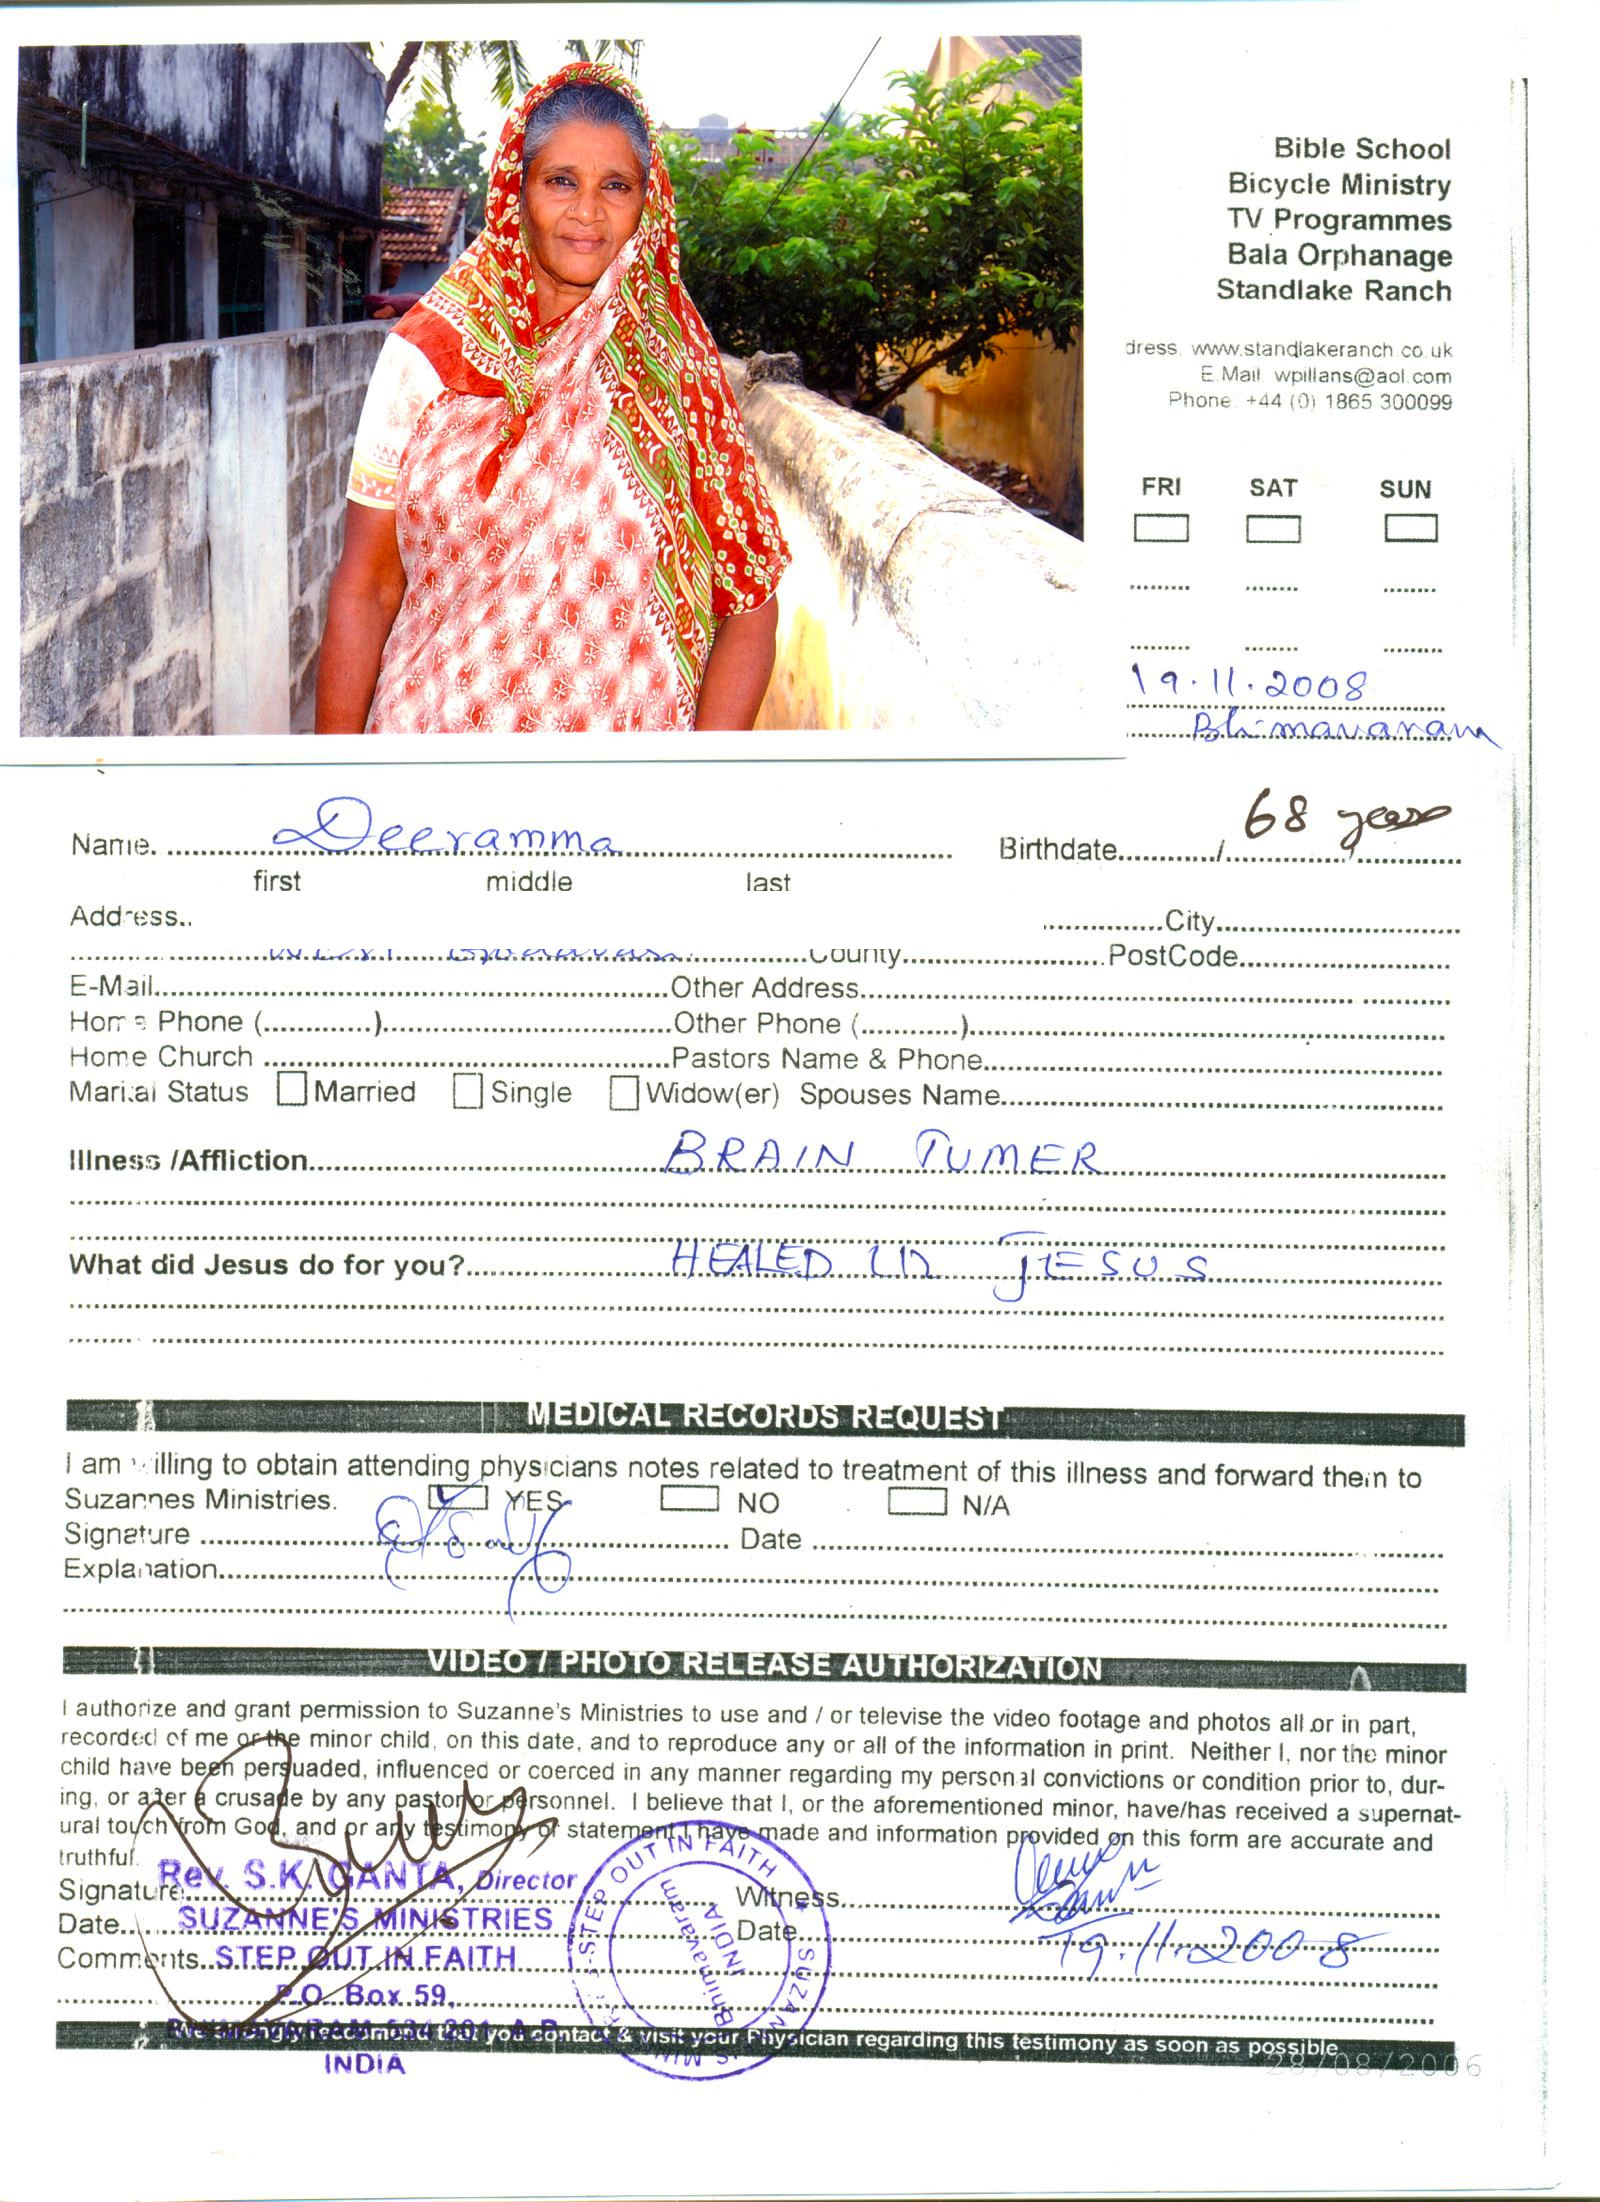 Bible School
Bicycle Ministry
TV Programmes
Bala Orphanage
Standlake Ranch
dress. www.standlakeranch.co.uk
E.Mail wpillans@aol.com
Phone: +44 (0) 1865 300099
FRI SAT SUN
19.11.2008
Bhimavaram
Name. Deeramma Birthdate / 68 years
first middle last
Address.. City
County PostCode
E-Mail Other Address
Home Phone ( ) Other Phone ( )
Home Church Pastors Name & Phone
Marital Status Married Single Widow(er) Spouses Name
Illness /Affliction BRAIN TUMER
What did Jesus do for you? HEALED IN JESUS
MEDICAL RECORDS REQUEST
I am willing to obtain attending physicians notes related to treatment of this illness and forward them to
Suzannes Ministries. YES NO N/A
Signature Date
Explanation
VIDEO / PHOTO RELEASE AUTHORIZATION
I authorize and grant permission to Suzanne's Ministries to use and / or televise the video footage and photos all or in part,
recorded of me or the minor child, on this date, and to reproduce any or all of the information in print. Neither I, nor the minor
child have been persuaded, influenced or coerced in any manner regarding my personal convictions or condition prior to, dur-
ing, or after a crusade by any pastor or personnel. I believe that I, or the aforementioned minor, have/has received a supernat-
ural touch from God, and or any testimony or statement I have made and information provided on this form are accurate and
truthful.
Rev. S.K. GANTA, Director
Signature Witness
SUZANNE'S MINISTRIES
Date Date 19.11.2008
Comments STEP OUT IN FAITH
P.O. Box 59,
BHIMAVARAM-534 201, A.P.
INDIA
STEP OUT IN FAITH * SUZANNE'S MINISTRIES
Bhimavaram
INDIA
you contact & visit your Physician regarding this testimony as soon as possible
28/08/2006